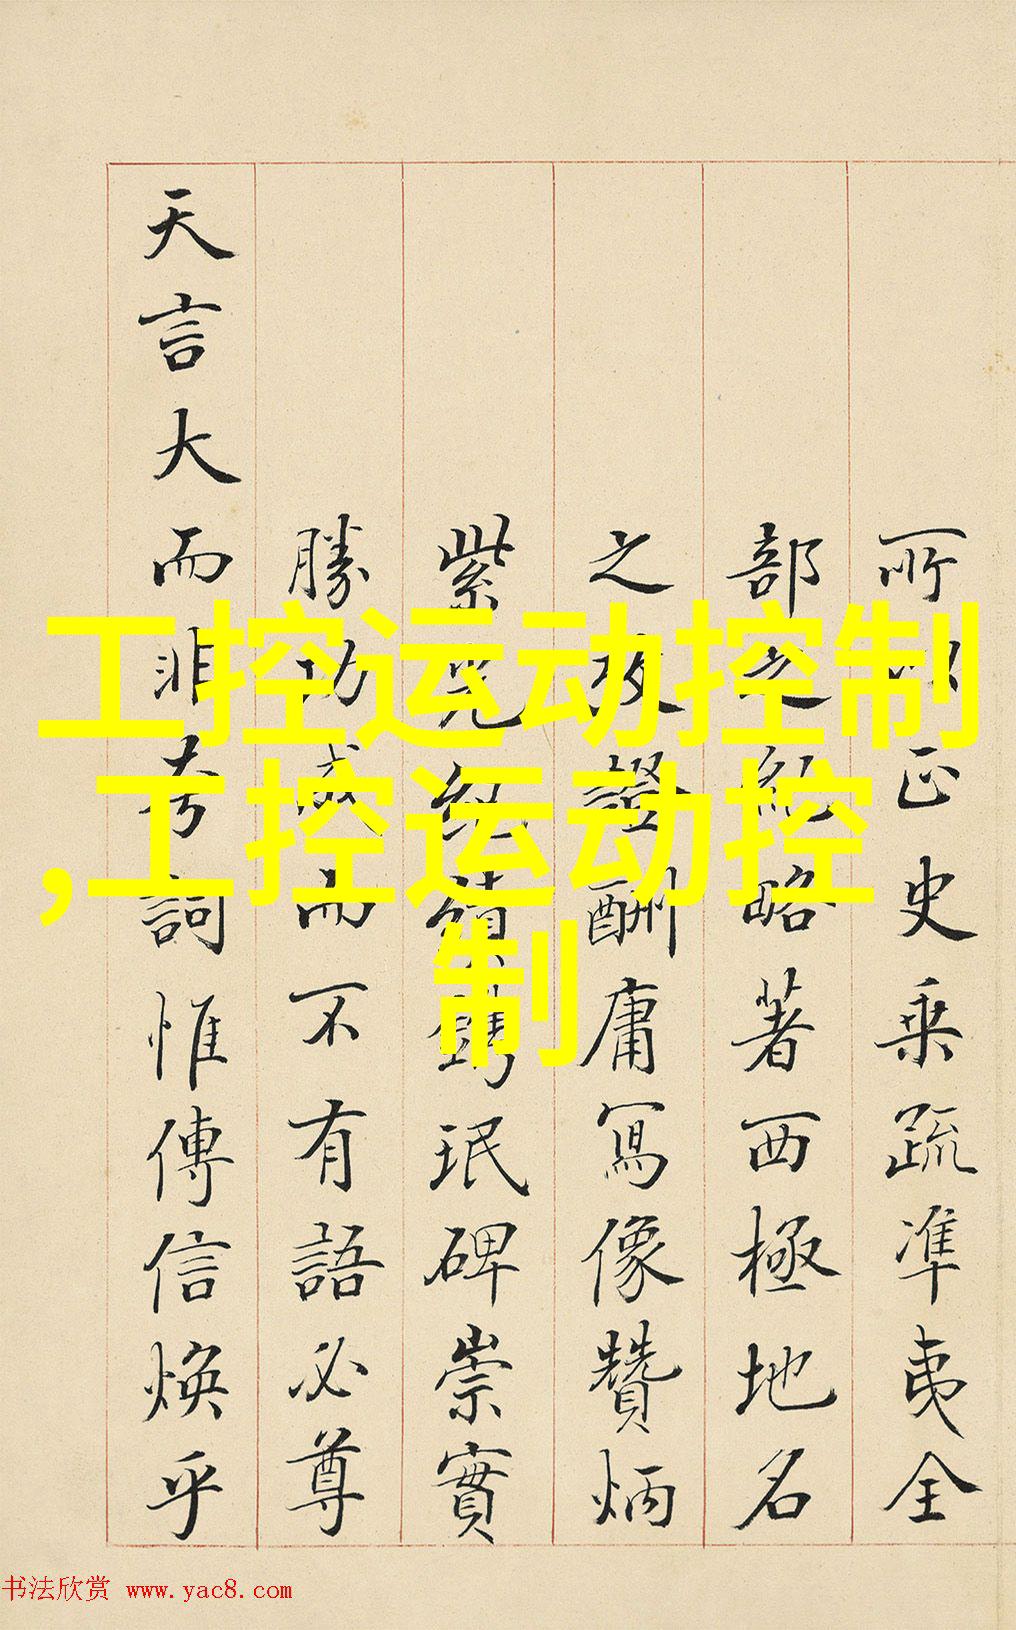 所以正史乘疏凖夷全
部之紀略著西極地名
之故證酬庸寫像贊炳
紫光紀績鐫珉碑崇實
勝功成而不有語必尊
天言大而非夸詞惟傳信煥乎
工控运动控制
,工控运动控
制
书法欣赏 www.yac8.com